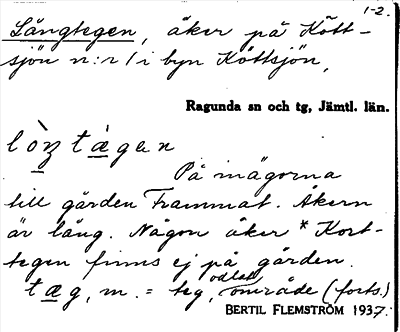 1-2.
Långtegen, åker på Kött-
sjön n:r 1 i byn Köttsjön,
Ragunda sn och tg, Jämtl. län.
lòŋtägen
På inägorna
till gården Frammat. Åkern
är lång. Någon åker * Kort-
tegen finns ej på gården.
täg, m. = teg, odlat område (forts.)
BERTIL FLEMSTRÖM 1937.